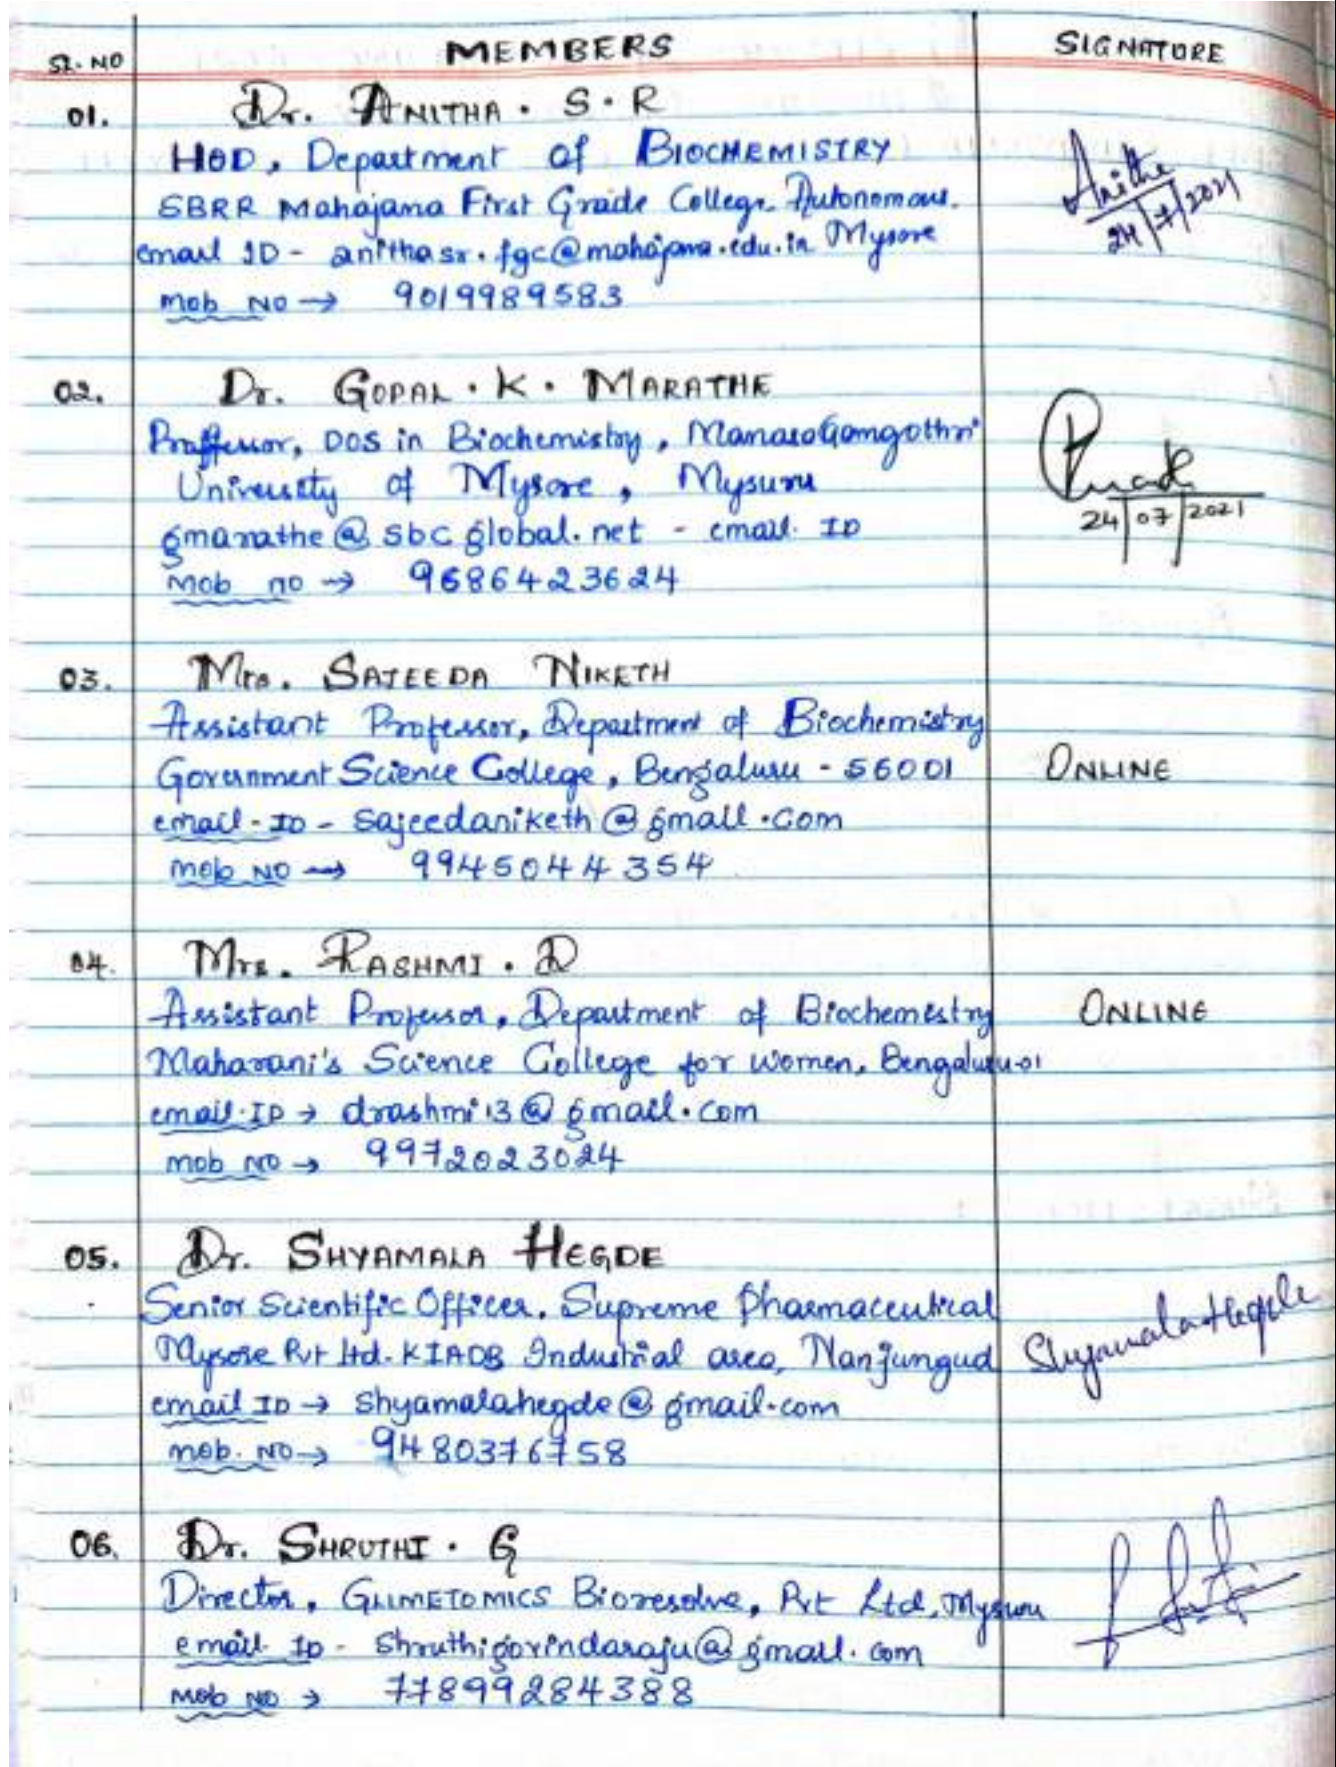 SL. NO MEMBERS SIGNATURE
01. Dr. ANITHA . S . R
HOD, Department of BIOCHEMISTRY
SBRR Mahajana First Grade College. Autonomous.
email ID - anithasr.fgc@mahajana.edu.in Mysore
Anitha
24/7/2021
mob NO → 9019989583
02. Dr. GOPAL . K . MARATHE
Proffessor, DOS in Biochemistry, ManasaGangothri
University of Mysore, Mysuru
gmarathe@sbcglobal.net - email. ID
24/07/2021
mob no → 9686423624
03. Mrs. SAJEEDA NIKETH
Assistant Professor, Department of Biochemistry
Government Science College, Bengaluru - 56001 ONLINE
email - ID - sajeedaniketh@gmail.com
mob NO → 9945044354
04. Mrs. RASHMI . D
Assistant Professor, Department of Biochemistry ONLINE
Maharani's Science College for women, Bengaluru-01
email.ID → drashmi13@gmail.com
mob NO → 9972023024
05. Dr. SHYAMALA HEGDE
Senior Scientific Officer. Supreme Pharmaceutical
Mysore Pvt Ltd. KIADB Industrial area, Nanjungud Shyamala Hegde
email ID → shyamalahegde@gmail.com
mob. NO → 9480376758
06. Dr. SHRUTHI . G
Director, GLIMETOMICS Bioresolve, Pvt Ltd, Mysuru
email ID - shruthigovindaraju@gmail.com
mob NO → 77899284388